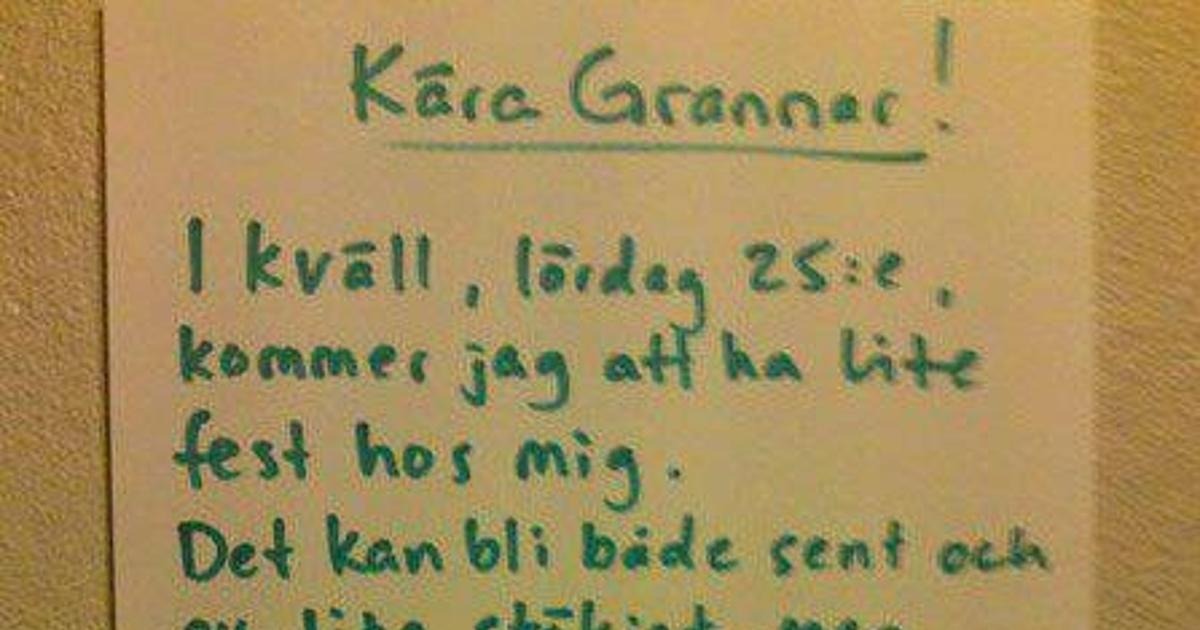 Kära Grannar!
I kväll, lördag 25:e,
kommer jag att ha lite
fest hos mig.
Det kan bli både sent och